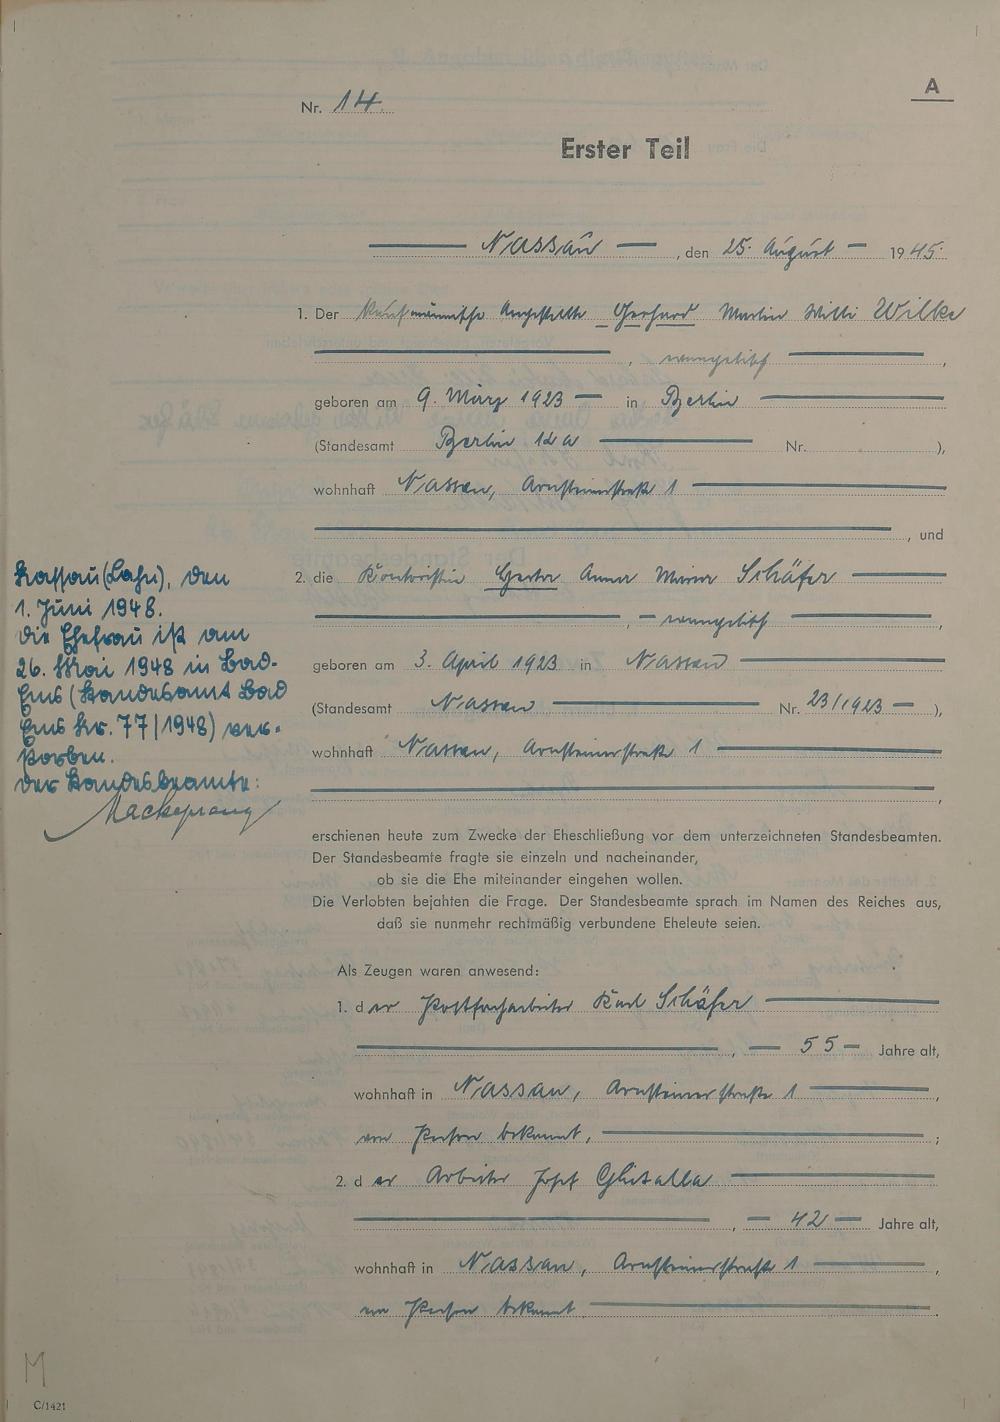 A
Nr. 14.
Erster Teil
Nassau, den 25. August 1945.
1. Der Kaufmännische Angestellte Gerhard Martin Willi Wilke
, evangelisch ,
geboren am 9. März 1923 in Berlin
(Standesamt Berlin 12a Nr. ),
wohnhaft Nassau, Arnsteinerstraße 1
, und
2. die Kontoristin Gerta Anna Maria Schäfer
, evangelisch ,
geboren am 3. April 1923 in Nassau
(Standesamt Nassau Nr. 23/1923 ),
wohnhaft Nassau, Arnsteinerstraße 1
,
Nassau (Lahn), den
1. Juni 1948.
Die Ehefrau ist am
26. Mai 1948 in Bad-
Ems (Standesamt Bad
Ems Nr. 77/1948) ver-
storben.
Der Standesbeamte:
Mackeprang
erschienen heute zum Zwecke der Eheschließung vor dem unterzeichneten Standesbeamten.
Der Standesbeamte fragte sie einzeln und nacheinander,
ob sie die Ehe miteinander eingehen wollen.
Die Verlobten bejahten die Frage. Der Standesbeamte sprach im Namen des Reiches aus,
daß sie nunmehr rechtmäßig verbundene Eheleute seien.
Als Zeugen waren anwesend:
1. der Postfacharbeiter Karl Schäfer
, 55 Jahre alt,
wohnhaft in Nassau, Arnsteinerstraße 1 ,
von Person bekannt, ;
2. der Arbeiter Josef Ghisalla
, 42 Jahre alt,
wohnhaft in Nassau, Arnsteinerstraße 1 ,
von Person bekannt .
M
C/1421